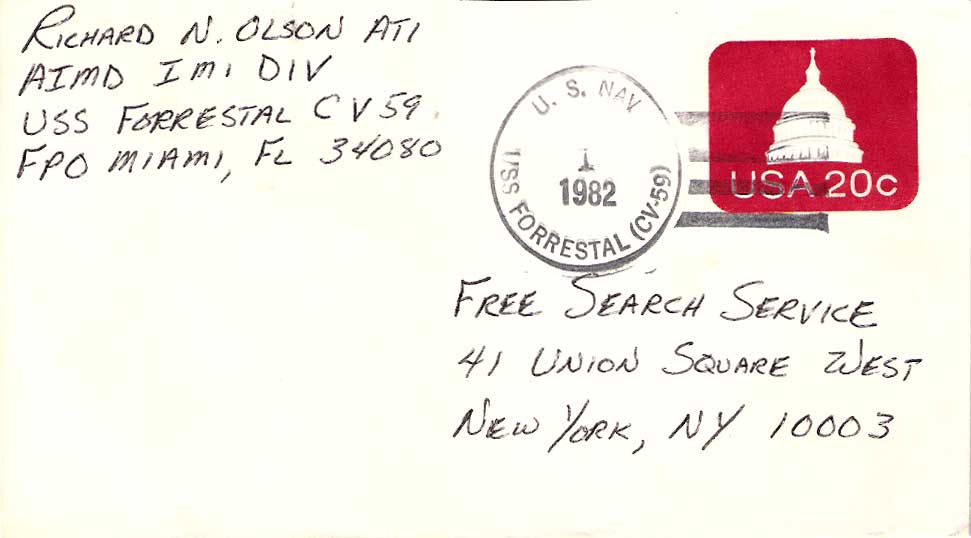 RICHARD N. OLSON AT1
AIMD IM1 DIV
USS FORRESTAL CV 59
FPO MIAMI, FL 34080
U. S. NAV
1
1982
USS FORRESTAL (CV-59)
USA 20c
FREE SEARCH SERVICE
41 UNION SQUARE WEST
NEW YORK, NY 10003